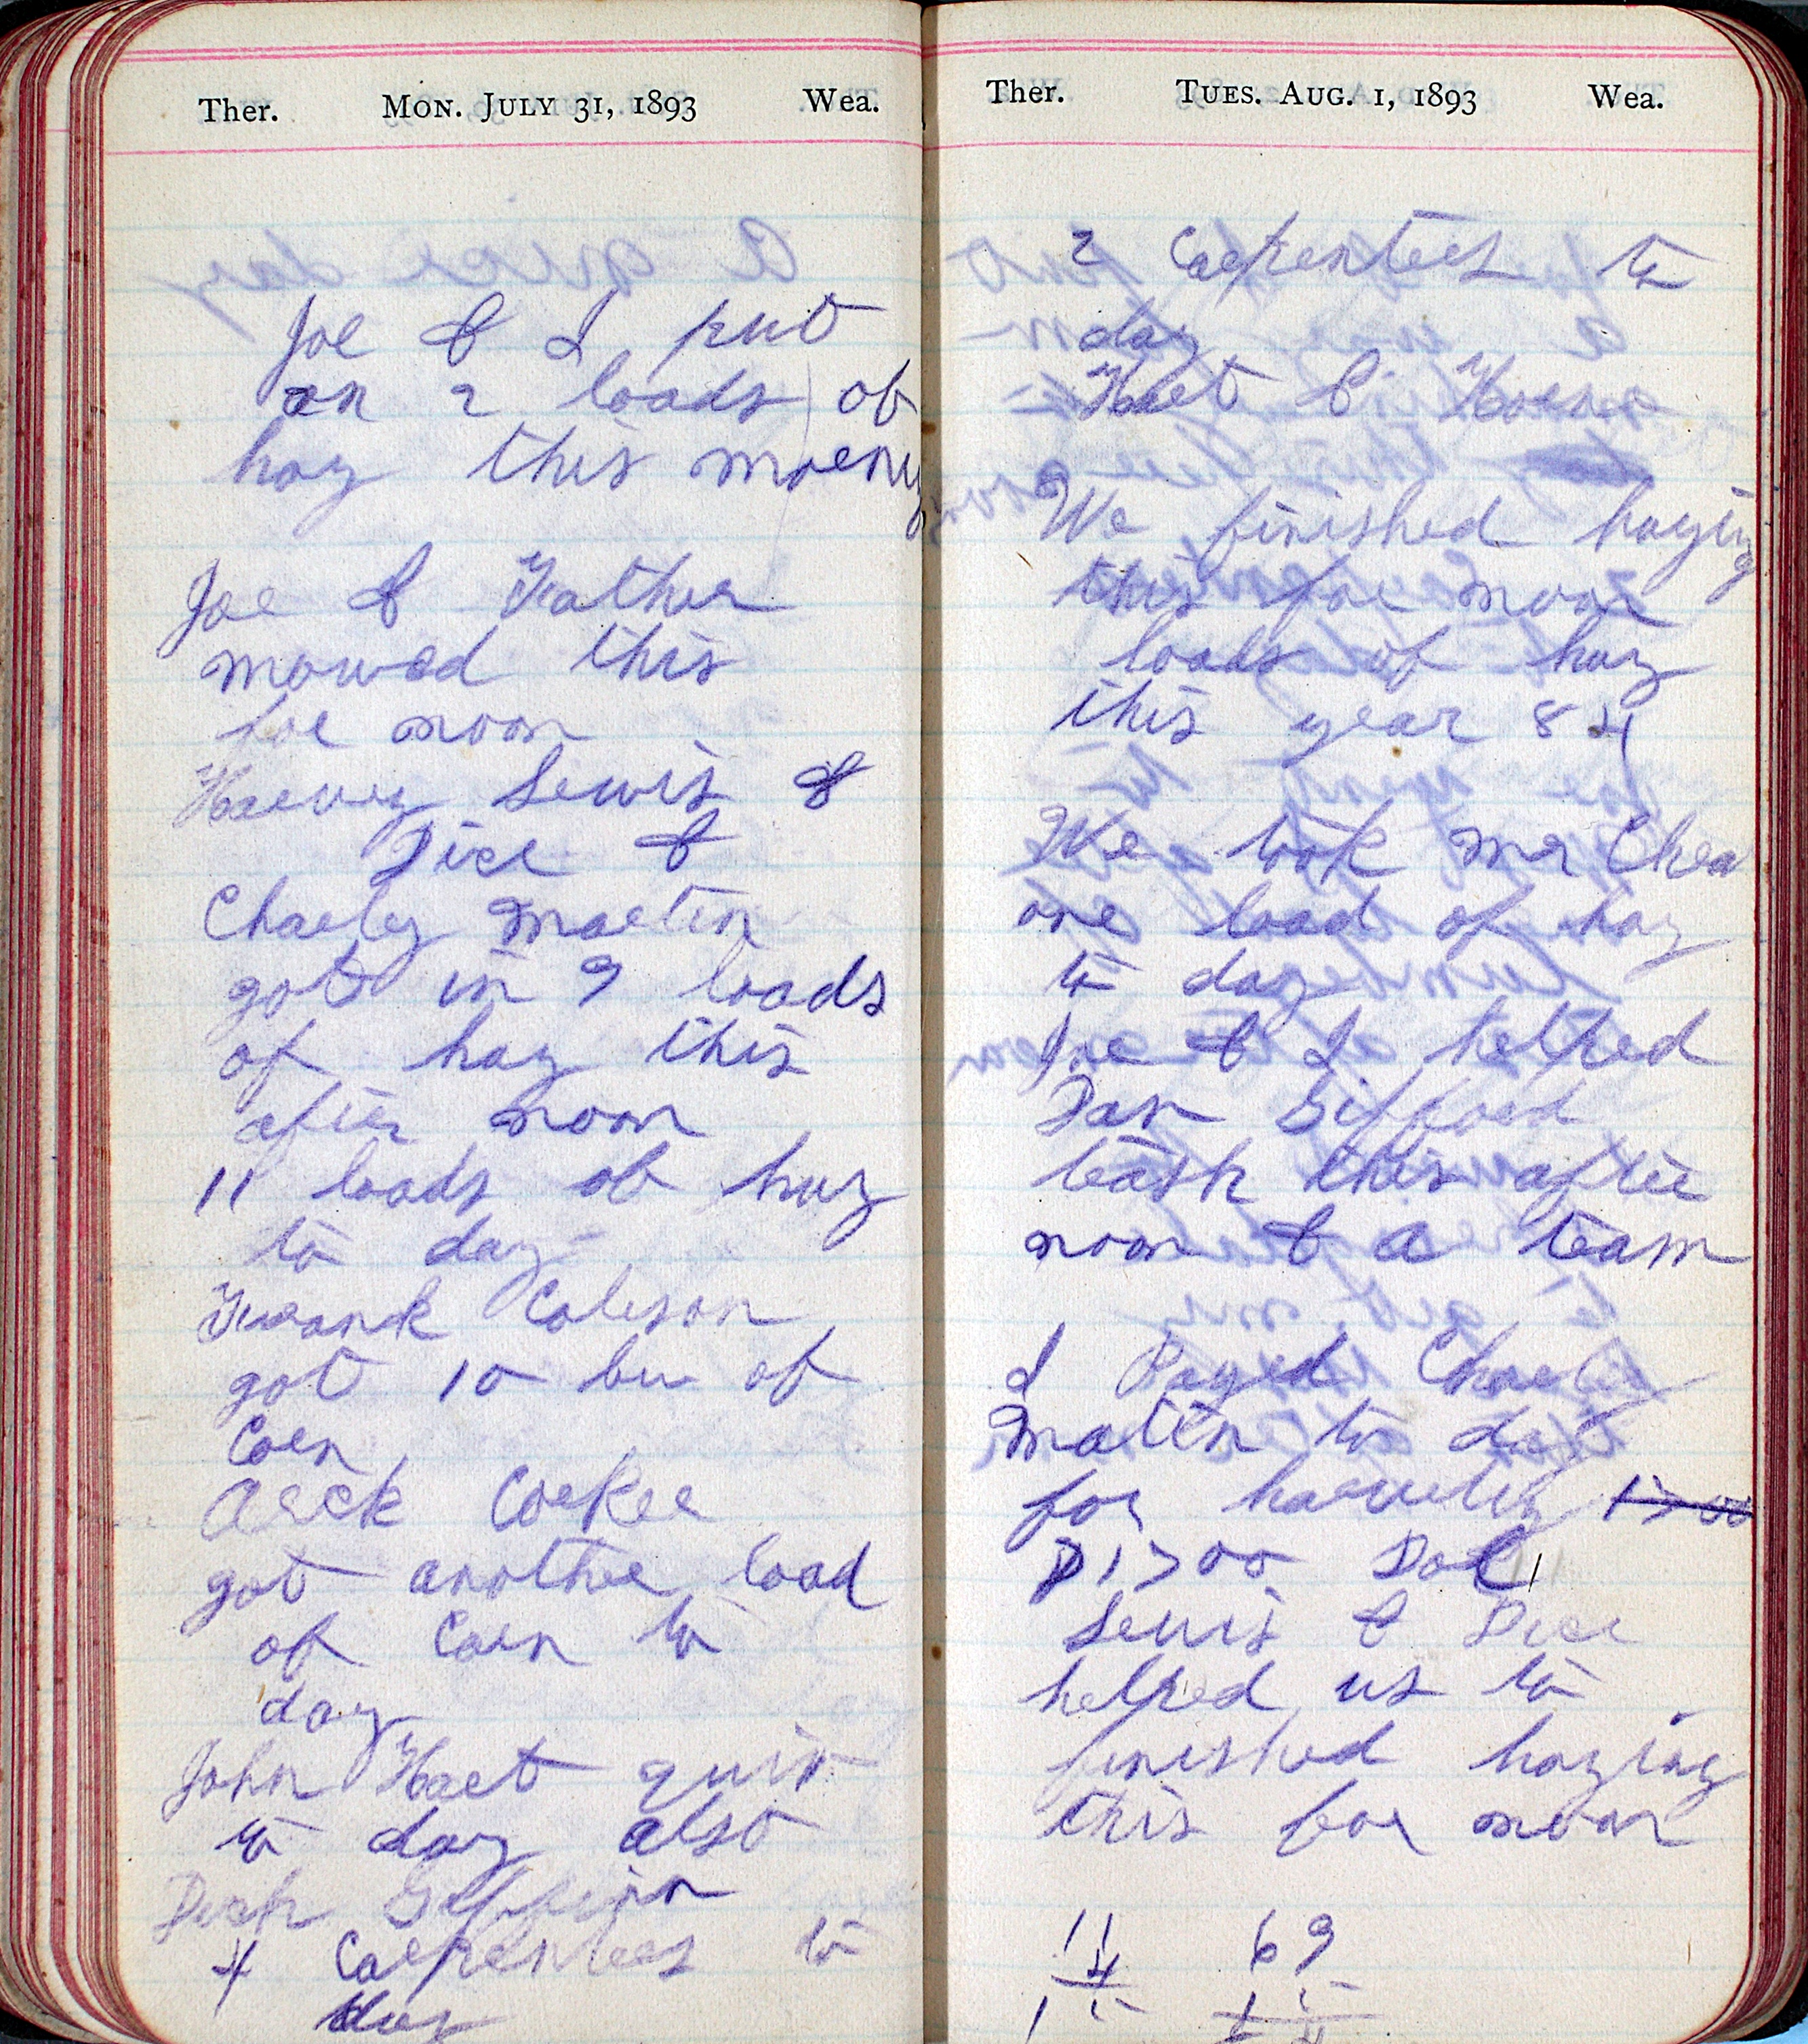 Ther. MON. JULY 31, 1893 Wea.
Joe & I put
on 2 loads of
hay this morny
Joe & Father
mowed this
for noon
Harvey Lewis &
Dice &
Charley Martin
got in 9 loads
of hay this
after noon
11 loads of hay
to day
Frank Coleson
got 10 bu of
Corn
Arck Corker
got another load
of Corn to
day
John Hart quit
to day also
Dick Giffinn
4 Carpenters to
day
Ther. TUES. AUG. 1, 1893 Wea.
2 Carpenters to
day
Hart &
We finished haying
this for noon
loads of hay
this year 84
We took mr
one load of hay
to day
Joe & I helped
Dan Gifford
trash this after
noon & a team
I Payed Charley
Matin to day
for harveting 17 00
D 17 00 Dol
Lewis & Dice
helped us to
finished haying
this for noon
11 69
4 15
15